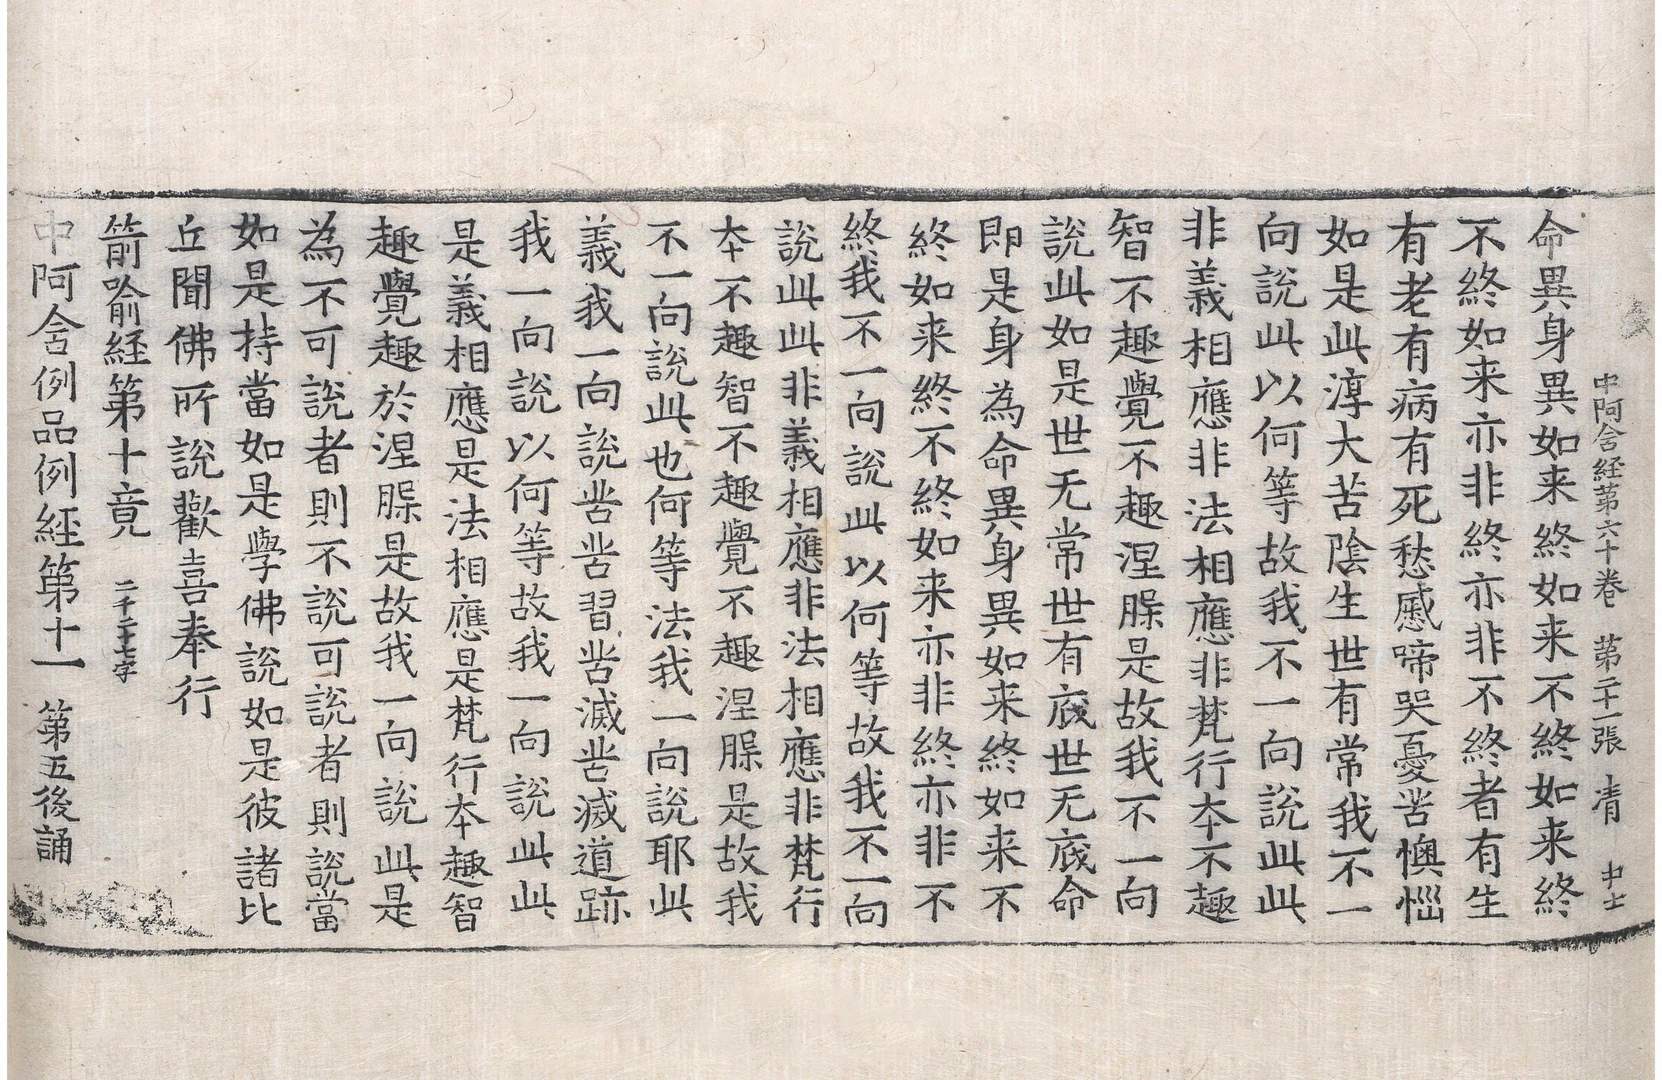 中阿含経苐六十卷 苐二十一張 凊 中士
命異身異如来終如来不終如来終
不終如来亦非終亦非不終者有生
有老有病有死愁慼啼哭憂苦懊惱
如是此淳大苦陰生世有常我不一
向說此以何等故我不一向說此此
非義相應非法相應非梵行夲不趣
智不趣覺不趣涅槃是故我不一向
說此如是世无常世有底世无底命
即是身為命異身異如来終如来不
終如来終不終如来亦非終亦非不
終我不一向說此以何等故我不一向
說此此非義相應非法相應非梵行
夲不趣智不趣覺不趣涅槃是故我
不一向說此也何等法我一向說耶此
義我一向說苦苦習苦滅苦滅道跡
我一向說以何等故我一向說此此
是義相應是法相應是梵行夲趣智
趣覺趣於涅槃是故我一向說此是
為不可說者則不說可說者則說當
如是持當如是學佛說如是彼諸比
丘聞佛所說歡喜奉行
箭喻経第十竟 二千二十七字
中阿含例品例経第十一 第五後誦